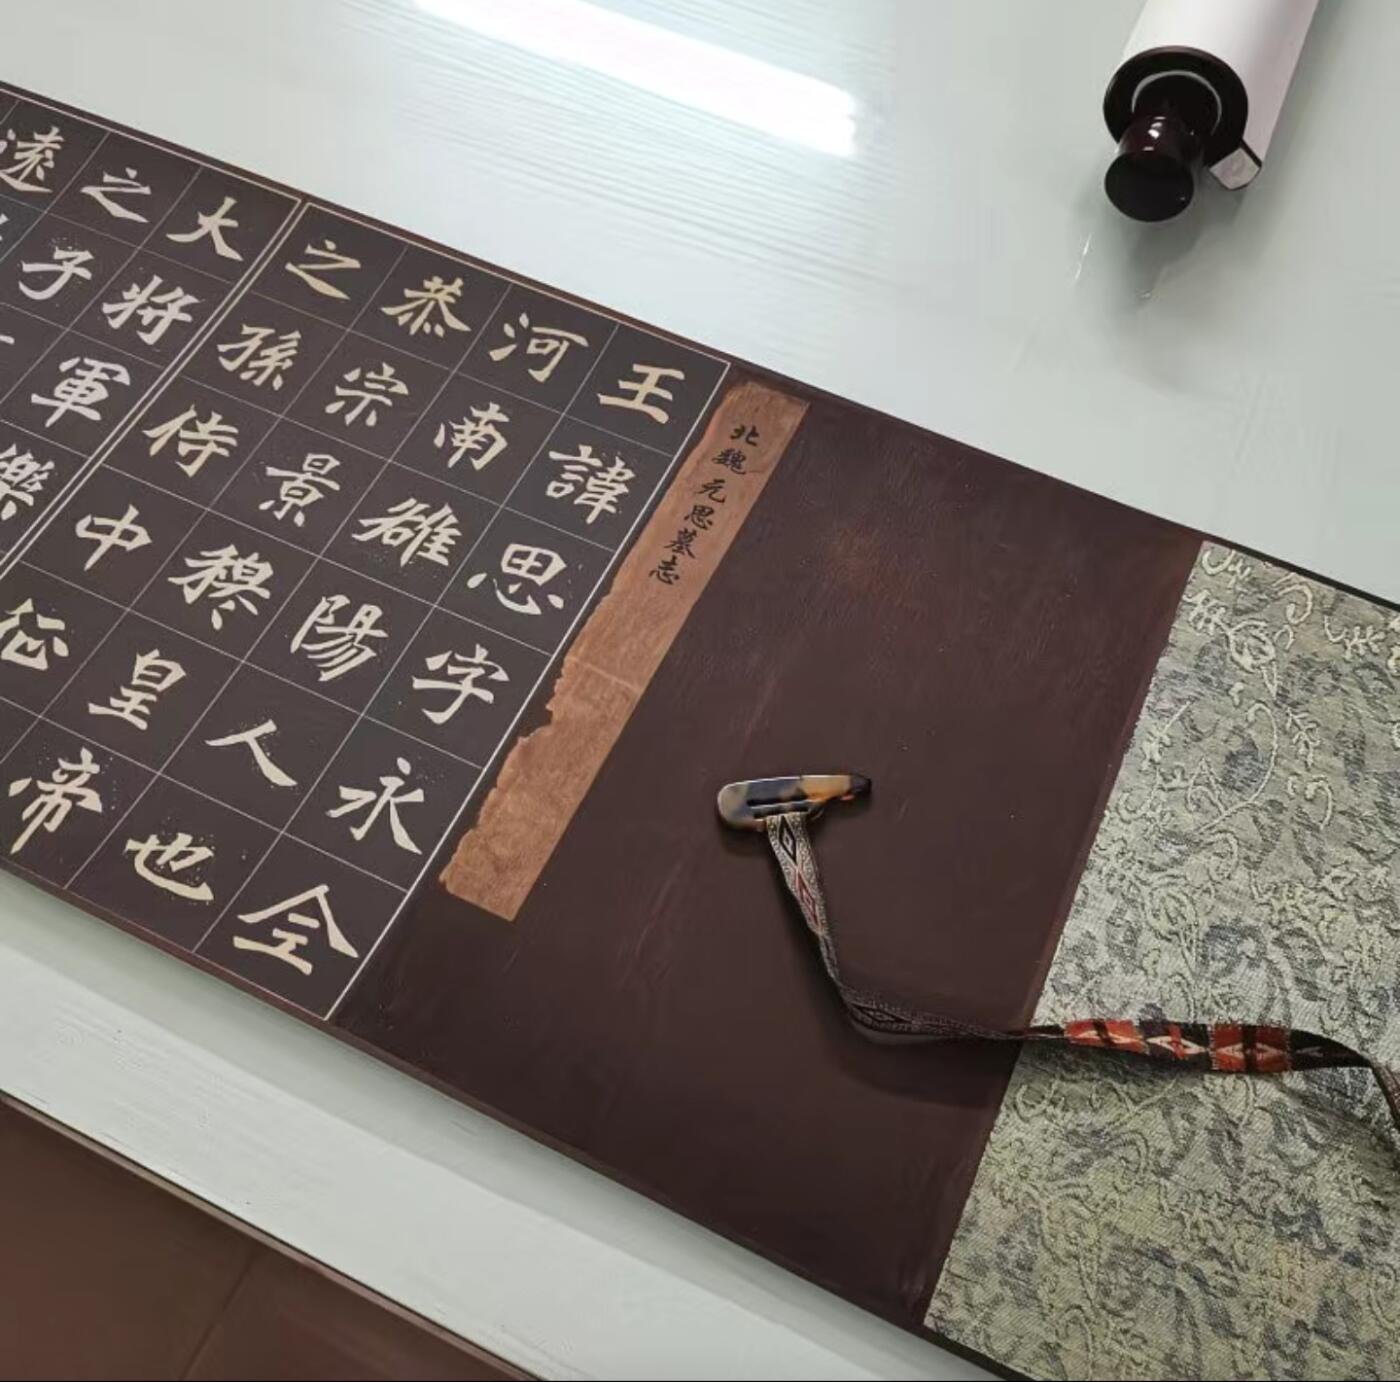 北魏元思墓志
王諱思字永全
河南雒陽人也
恭宗景穆皇帝
之孫侍中征
大將軍樂
之子
遠